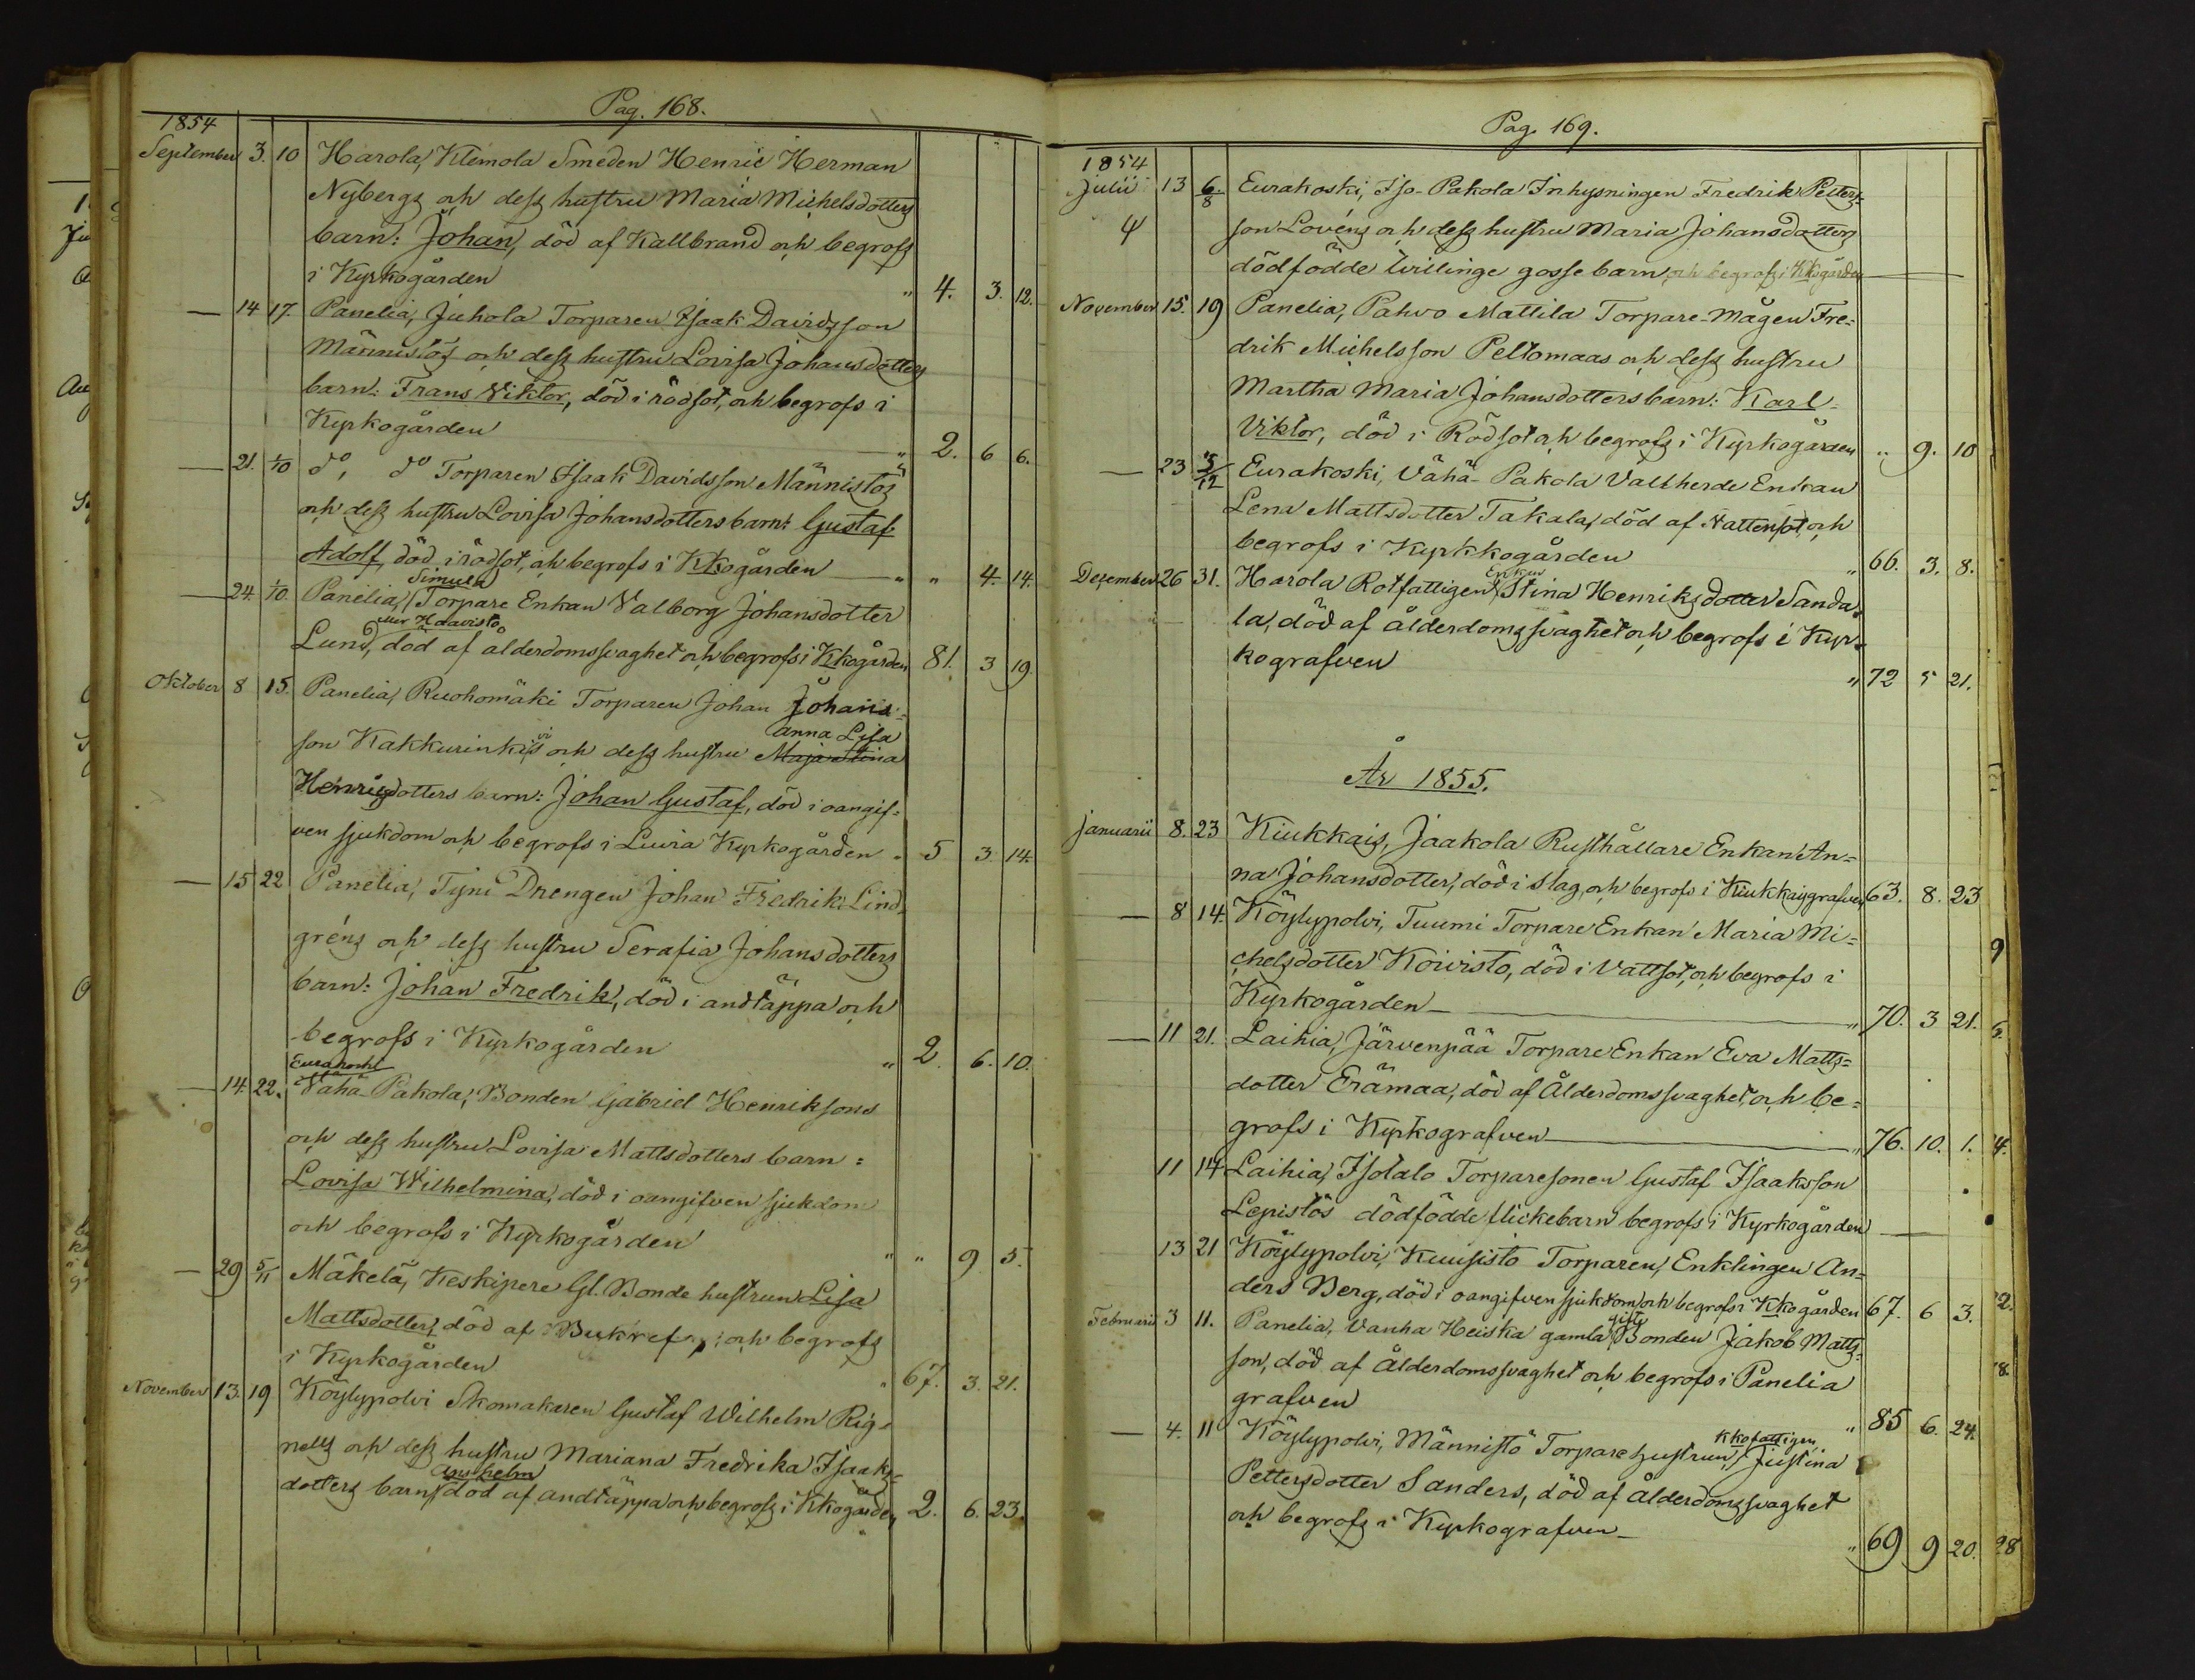 Pag. 168.
1854
September 3. 10 Harola, Klemola Smeden Henric Herman
Nybergs och dess hustru Maria Michelsdotters
barn: Johan, död af Kallbrand och begrofs
i Kyrkogården " 4. 3. 12.
— 14 17. Panelia, Juhola Torparen Isaak Davidsson
Männistös och dess hustru Lovisa Johansdotters
barn: Frans Viktor, död i rödsot, och begrofs i
Kyrkogården — " 2. 6 6.
— 21. 1/10 do, do Torparen Isaak Davidsson Männistös
och dess hustru Lovisa Johansdotters barn: Gustaf
Adolf, död i rödsot, och begrofs i Kkogården — " " 4. 14.
Simula
— 24. 1/10. Panelia, Torpare Enkan Valborg Johansdotter
eller Haavisto
Lund, död af ålderdomssvaghet och begrofs i Kkogården 81. 3 19.
Oktober 8 15. Panelia, Ruohomäki Torparen Johan Johans-
Anna Lisa
son Kakkurinkis och dess hustru Maja Stina
Henricsdotters barn: Johan Gustaf, död i oangif-
ven sjukdom och begrofs i Luvia Kyrkogården " 5 3 14.
— 15 22 Panelia, Tyni Drengen Johan Fredrik Lind-
gréns och dess hustru Serafia Johansdotters
barn: Johan Fredrik, död i andtäppa och
begrofs i Kyrkogården " 2. 6. 10.
Eurakoski
— 14. 22. Vähä Pakola, Bonden Gabriel Henriksons
och dess hustru Lovisa Mattsdotters barn:
Lovisa Wilhelmina, död i oangifven sjukdom
och begrofs i Kyrkogården " " 9 5.
— 29 5/11 Mäkelä, Keskipere Gl. Bonde hustrun Lisa
Mattsdotter, död af Bukref och begrofs
i Kyrkogården " 67. 3. 21.
November 13. 19 Köylypolvi Skomakaren Gustaf Wilhelm Rig-
nells och dess hustru Mariana Fredrika Isaks-
Anshelm
dotters barn död af andtäppa och begrofs i Kkogården 2. 6. 23.
Pag. 169.
1854
Julii 13 6/8 Eurakoski, Iso-Pakola Inhysningen Fredrik Petters-
son Lovéns och dess hustru Maria Johansdotters
dödfödde tvillinge gossebarn, och begrofs i Kkogården —
November 15. 19 Panelia, Pahvo Mattila Torpare-mågen Fre-
drik Michelsson Peltomaas och dess hustru
Martha Maria Johansdotters barn: Karl
Viktor, död i Rödsot och begrofs i Kyrkogården " 9. 10
— 23 3/12 Eurakoski, Vähä-Pakola Vallherde Enkan
Lena Mattsdotter Takala, död af Vattensot och
begrofs i Kyrkkogården " 66. 3. 8.
Enkan
Dezember 26 31. Harola Rotfattigen Stina Henriksdotter Sanda-
la, död af ålderdomssvaghet och begrofs i Kyr-
kografven " 72 5 21.
År 1855.
Januarii 8. 23 Kiukkais, Jaakola Rusthållare Enkan An-
na Johansdotter, död i Slag, och begrofs i Kiukkaisgrafven 63. 8. 23
— 8 14. Köylypolvi, Tuumi Torpare Enkan Maria Mi-
chelsdotter Koivisto, död i Vattsot, och begrofs i
Kyrkogården — " 70. 3 21.
— 11 21. Laihia, Järvenpää Torpare Enkan Eva Matts-
dotter Erämaa, död af Ålderdomssvaghet, och be-
grofs i Kyrkografven — " 76. 10. 1.
11 14 Laihia, Isotalo Torparesonen Gustaf Isaaksson
Lepistös dödfödde flickebarn begrofs i Kyrkogården —
13 21 Köylypolvi, Kuusisto Torparen, Enklingen An-
ders Berg, död i oangifven sjukdom och begrofs i Kkogården 67. 6 3.
gifte
Februarii 3 11. Panelia, Vanha Heiska gamla Bonden Jakob Matts-
son, död af Ålderdomssvaghet och begrofs i Panelia
grafven " 85 6. 24.
Kkofattigen
— 4. 11 Köylypolvi, Männistö Torpare hustrun, Justina
Pettersdotter Sanders, död af Ålderdomssvaghet
och begrofs i Kyrkografven — " 69 9 20.